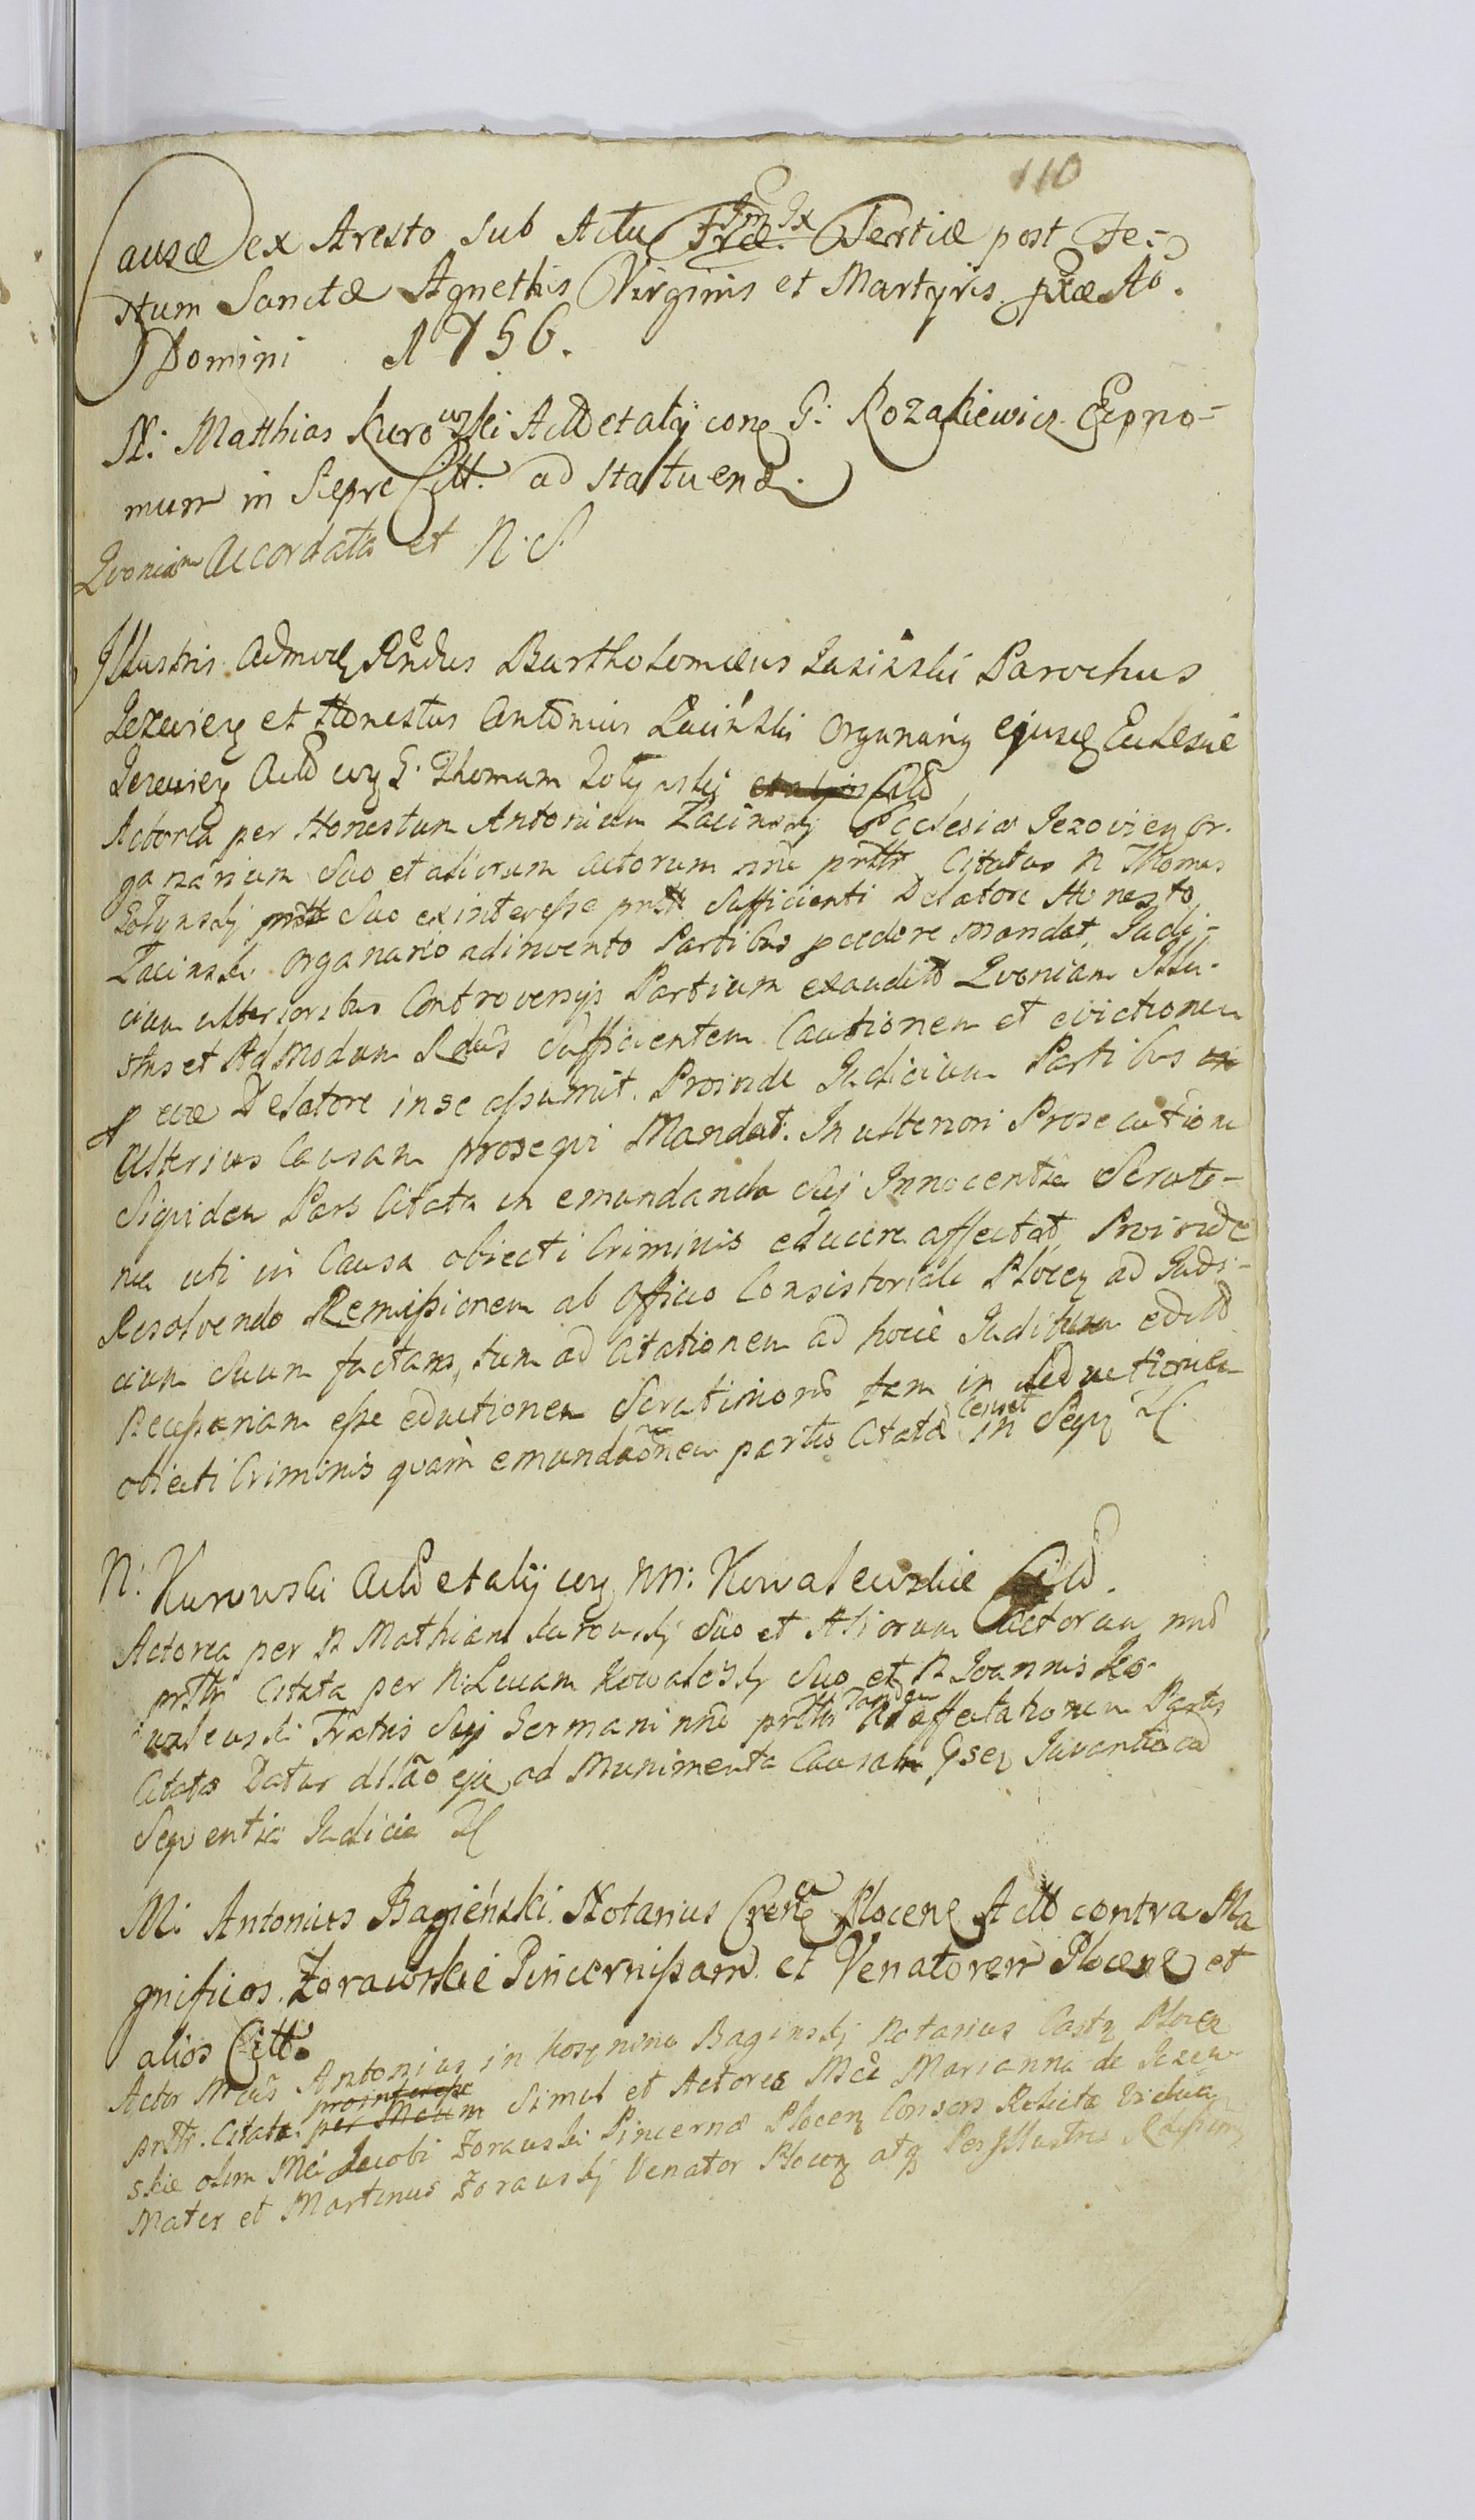 110
Causæ ex Aresto sub Actu Fræ Tertiæ post Fe-
stum Sanctæ Agnethis Virginis et Martyris pxæ Ao.
Domini 1756.
N: Matthias Kurowski Actt et alij con G: Kozakiewicz Econo-
mum in Siepre Citt. ad statuend.
Quoniam Accordata et N. S.
Illustris Admod Rndus Bartholomæus Lasinski Parochus
Jezevien et Honestus Antonius Łaciński Organarig ejusd Eclesiæ
Jezevien Actt G. Thomam Citt
Actorea per Honestum Antonium Łacinskj Ecclesiæ Jezovien or-
ganarium Suo et aliorum actorum nne prstt Citatus N Thomas
Suo ex interesse prstt Sufficienti Delatore Honesto
Łacinski organario adinvento Partibus pcedere mandat, Judi-
cium ulterioribus Controversijs Partium exaudit Quoniam Illu-
stris et Admodum Rdus sufficientem Cautionem et evictionem
Delatore in se assumit. Proinde Judicium Partibus
Ulterius Causam prosequi Mandat. In ulteriori Prosecutione
Siquidem Pars Citata in emundanda Suj Innocentia Scrute-
nia uti in Causa obiecti Criminis educere affectat, Proinde
Resolvendo Remissionem ab Officio Consistoriali Plocen ad Judi-
cium Suum factam, tum ad Citationem ad hocce Juditium
Necessariam esse eductionem Scrutiniorum tam in deductionem
obiecti Criminis quàm emundãonem partis Citatæ censet in Seqn
N: Kurowski Actt et alij NN: Kowalewskie Citt.
Actorea per N Mathiam Kurowskj Suo et Aliorum Actorum nne
prsttr Citata per N: Lucam Kowalewskj Suo et N Joannis Ko-
waleuski Fratris Suj Germani nne prsttr Tandem ad affectationem Partis
Citatæ Datur dllão eju ad Munimenta Causam
Sequentia Judicia
M: Antonius Bagieński Notarius Plocens Actt contra Ma
gnificos Zorawskie Pincernissam et Venatorem Plocens et
alios Citt.
Actor Mcus Antonius in Bagienskj Notarius Castr Plocen
prsttr. Citata pro interesse per Mcum Simul et Actorea Mca Marianna de Jezew-
skie olim Mci Jacobi Zorauski Pincernæ Plocen Consors Relicta Vidua
Mater et Martinus Zorauskj Venator Plocen atq Perillustris